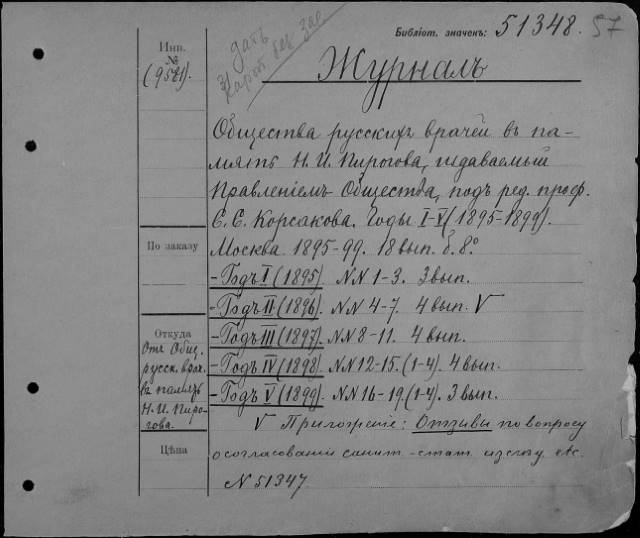 Библіот. значекъ: 51348. 57
Инв.
№
(9521).
дать
без
Журналъ
Общества русскихъ врачей въ па-
мять Н. И. Пирогова, издаваемый
Правленіемъ Общества, подъ ред. проф.
С. С. Корсакова. Годы I-V (1895-1899).
По заказу
Москва 1895-99. 18 вып. б. 8°.
- Годъ I (1895). NN 1-3. 3 вып.
- Годъ II (1896). NN 4-7. 4 вып. V
- Годъ III (1897). NN 8-11. 4 вып.
- Годъ IV (1898). NN 12-15. (1-4). 4 вып.
- Годъ V (1899). NN 16-19. (1-4). 3 вып.
Откуда
Отъ Общ.
русск. врач.
въ память
Н. И. Пиро-
гова.
V Приложеніе: Отзывы по вопросу
о согласованіи санит.-стат. изслѣд. etc.
N 51347
Цѣна